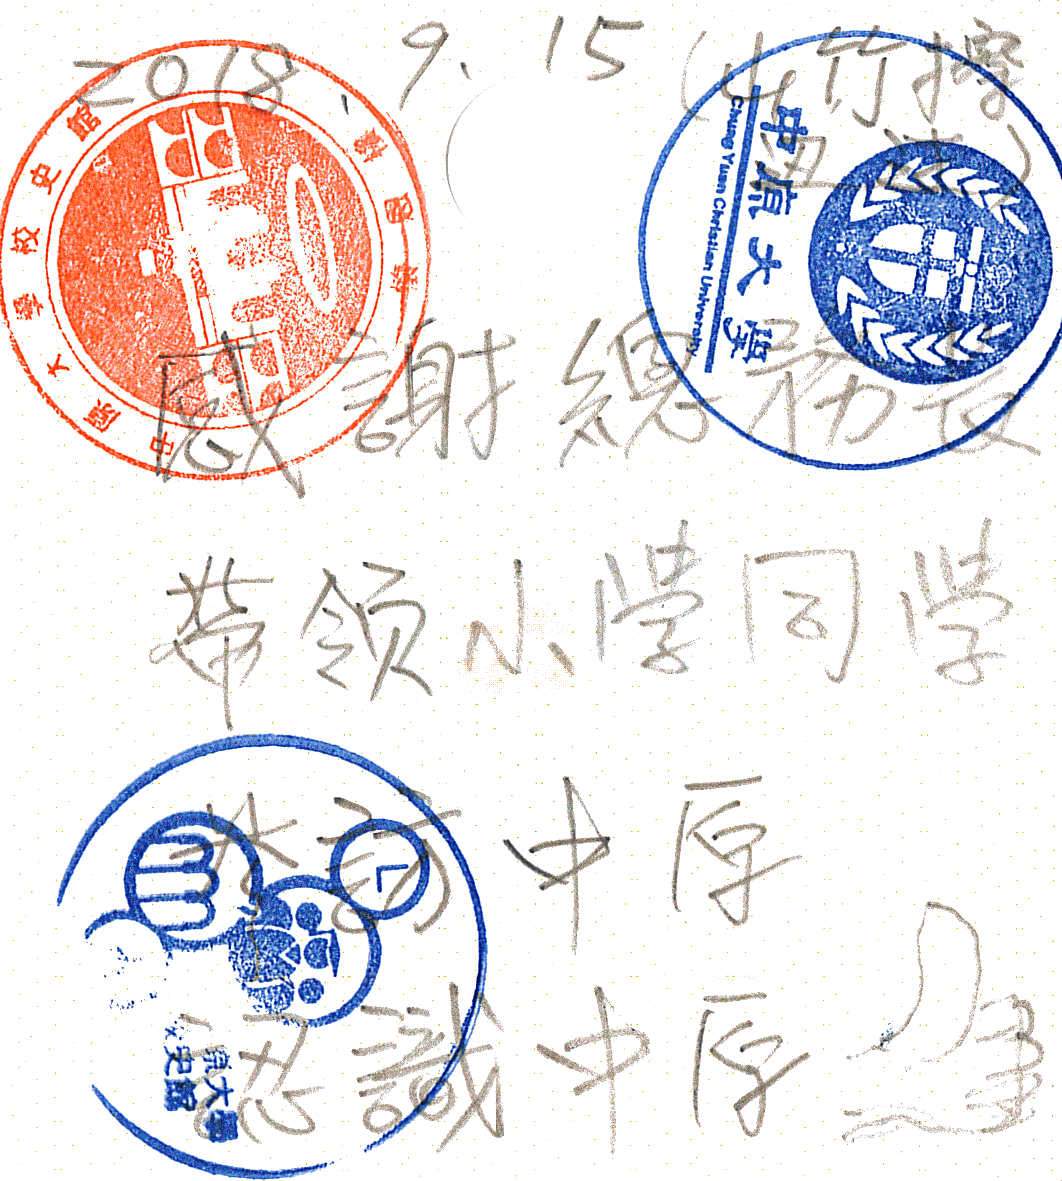 2018.9.15 (山竹擦
中原大學校史館
中原大學
Chung Yuan Christian University
感謝總務長
帶领小學同學
來訪中原
認識中原
原大學
史館